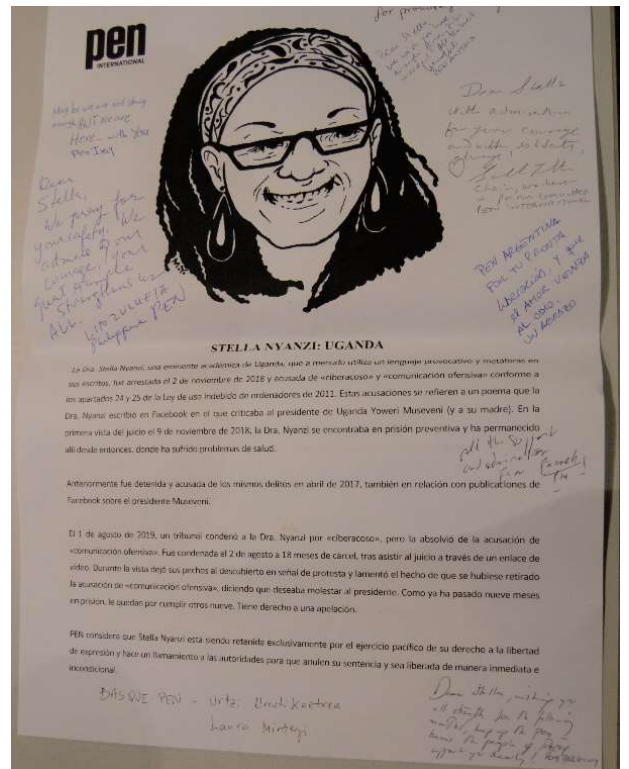 for
pen
INTERNATIONAL
Dear Stella,
May be we are not strong
enough BUT we are
Here with you
Pen
Dear
Stella,
We pray for
your safety. We
admire your
courage, your
great
strengthens us
ALL.
Philippine PEN
Dear Stella
with admiration
for your courage
and with solidarity,
Chair,
PEN INTERNATIONAL
PEN ARGENTINA
POR TU PRONTA
LIBERACIÓN, Y QUE
EL AMOR VENZA
AL ODIO.
UN ABRAZO
STELLA NYANZI: UGANDA
La Dra. Stella Nyanzi, una eminente académica de Uganda, que a menudo utiliza un lenguaje provocativo y metáforas en
sus escritos, fue arrestada el 2 de noviembre de 2018 y acusada de «ciberacoso» y «comunicación ofensiva» conforme a
los apartados 24 y 25 de la Ley de uso indebido de ordenadores de 2011. Estas acusaciones se refieren a un poema que la
Dra. Nyanzi escribió en Facebook en el que criticaba al presidente de Uganda Yoweri Museveni (y a su madre). En la
primera vista del juicio el 9 de noviembre de 2018, la Dra. Nyanzi se encontraba en prisión preventiva y ha permanecido
allí desde entonces, donde ha sufrido problemas de salud.
all the support
and admiration
from
Anteriormente fue detenida y acusada de los mismos delitos en abril de 2017, también en relación con publicaciones de
Facebook sobre el presidente Museveni.
El 1 de agosto de 2019, un tribunal condenó a la Dra. Nyanzi por «ciberacoso», pero la absolvió de la acusación de
«comunicación ofensiva». Fue condenada el 2 de agosto a 18 meses de cárcel, tras asistir al juicio a través de un enlace de
vídeo. Durante la vista dejó sus pechos al descubierto en señal de protesta y lamentó el hecho de que se hubiese retirado
la acusación de «comunicación ofensiva», diciendo que deseaba molestar al presidente. Como ya ha pasado nueve meses
en prisión, le quedan por cumplir otros nueve. Tiene derecho a una apelación.
PEN considera que Stella Nyanzi está siendo retenida exclusivamente por el ejercicio pacífico de su derecho a la libertad
de expresión y hace un llamamiento a las autoridades para que anulen su sentencia y sea liberada de manera inmediata e
incondicional.
BASQUE PEN - Urtzi Urrutikoetxea
Laura Mintegi
Dear Stella, wishing you
all strength for the following
keep up the pen,
the people of
support you